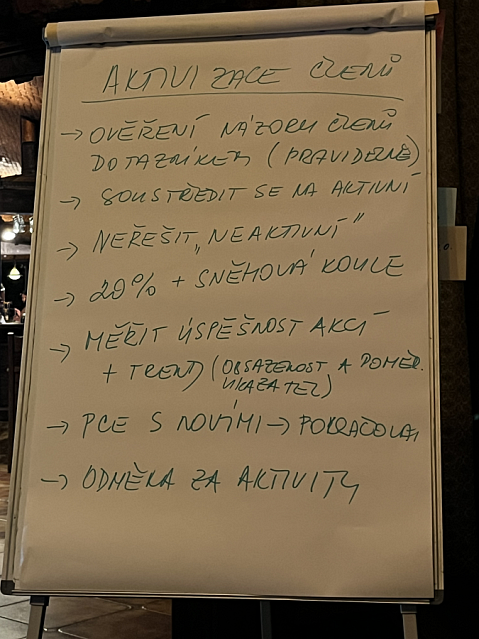 AKTIVIZACE ČLENŮ
→ OVĚŘENÍ NÁZORU ČLENŮ
DOTAZNÍKEM (PRAVIDELNĚ)
→ SOUSTŘEDIT SE NA AKTIVNÍ
→ NEŘEŠIT „NEAKTIVNÍ"
→ 20% + SNĚHOVÁ KOULE
→ MĚŘIT ÚSPĚŠNOST AKCÍ
+ TREND (OBSAZENOST A POMĚR.
UKAZATEL)
→ PCE S NOVÍMI → POKRAČOVAT
→ ODMĚNA ZA AKTIVITY